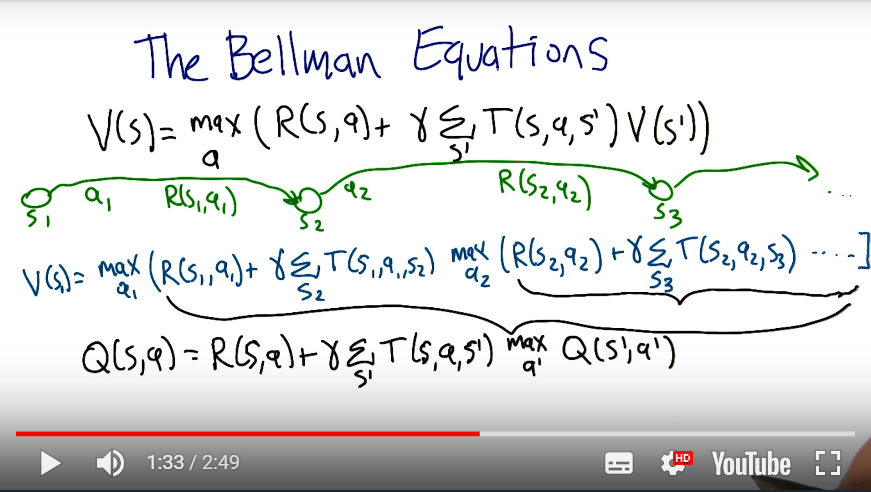 The Bellman Equations
V(s)= max ( R(s,a)+ γ Σ T(s,a,s') V(s'))
a s'
a₁ R(s₁,a₁) a₂ R(s₂,a₂) ...
s₁ s₂ s₃
V(s₁)= max (R(s₁,a₁)+ γ Σ T(s₁,a₁,s₂) max (R(s₂,a₂)+γ Σ T(s₂,a₂,s₃) ....]
a₁ s₂ a₂ s₃
Q(s,a) = R(s,a)+ γ Σ T(s,a,s') max Q(s',a')
s' a'
1:33 / 2:49 HD YouTube